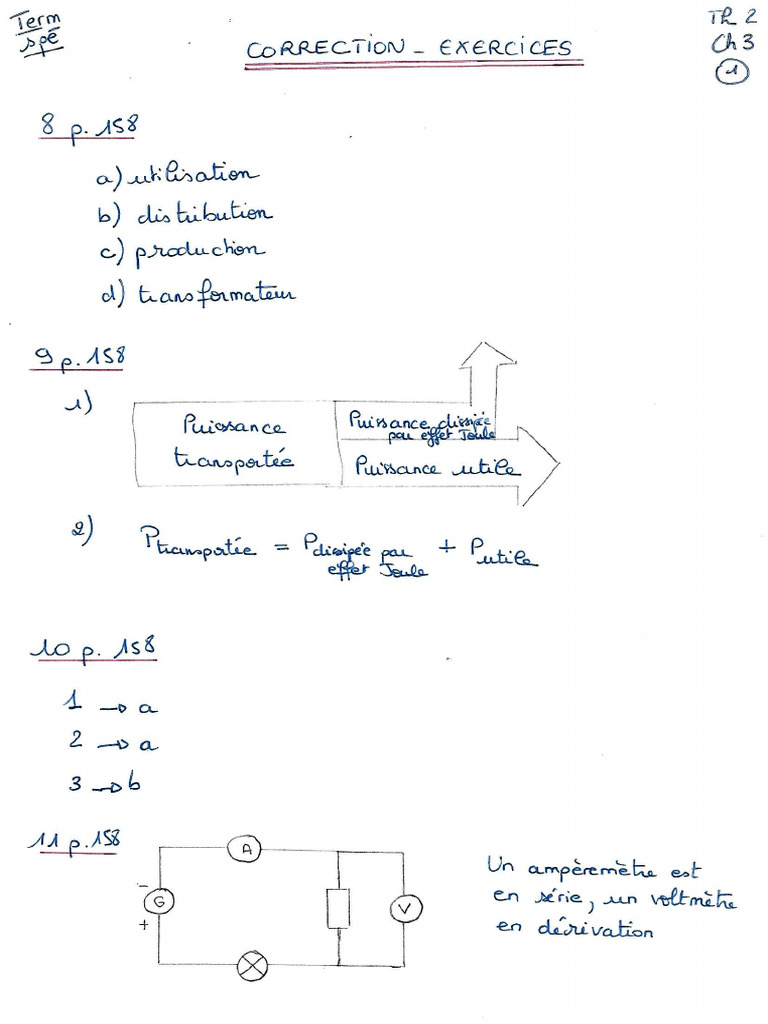 Term
spé
CORRECTION - EXERCICES
Th 2
Ch 3
1
8 p. 158
a) utilisation
b) distribution
c) production
d) transformateur
9 p. 158
1)
Puissance
transportée
Puissance dissipée
par effet Joule
Puissance utile
2) Ptransportée = Pdissipée par + Putile
effet Joule
10 p. 158
1 → a
2 → a
3 → b
11 p. 158
A
-
G
+
V
Un ampèremètre est
en série, un voltmètre
en dérivation